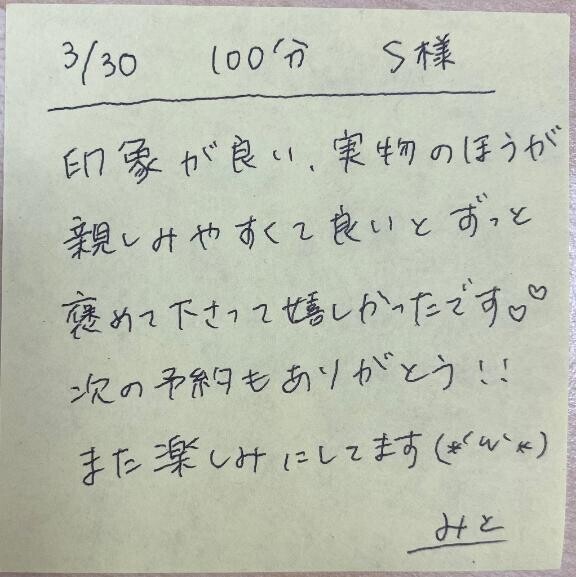 3/30 100分 S様
印象が良い、実物のほうが
親しみやすくて良いとずっと
褒めて下さって嬉しかったです♡♡
次の予約もありがとう!!
また楽しみにしてます(*´ω`*)
みと